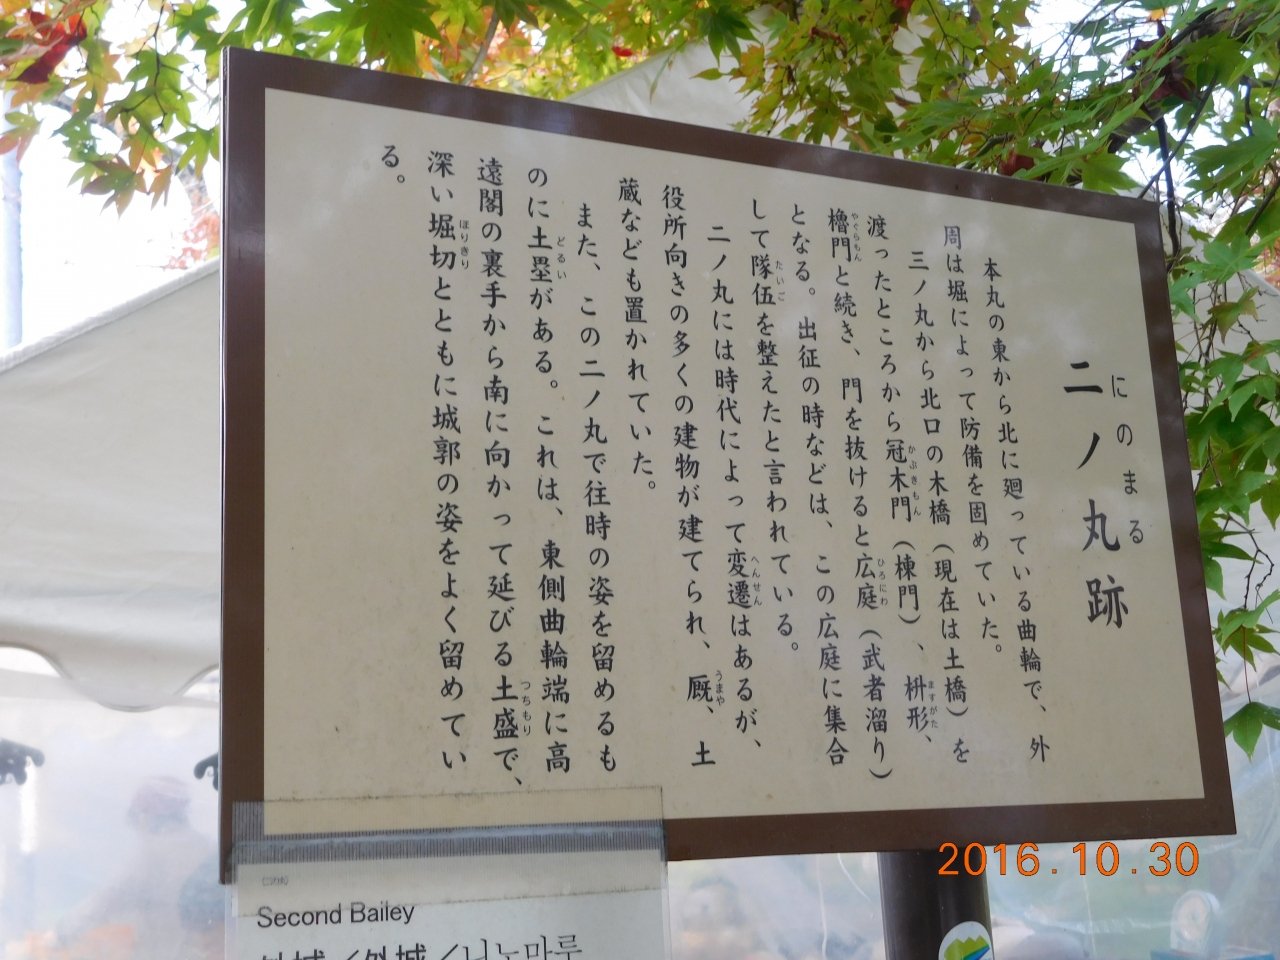 にのまる
二ノ丸跡
本丸の東から北に廻っている曲輪で、外
周は堀によって防備を固めていた。
三ノ丸から北口の木橋（現在は土橋）を
渡ったところから冠木門（棟門）、枡形、
かぶきもん
ますがた
櫓門と続き、門を抜けると広庭（武者溜り）
やぐらもん
ひろにわ
となる。出征の時などは、この広庭に集合
して隊伍を整えたと言われている。
たいご
二ノ丸には時代によって変遷はあるが、
へんせん
役所向きの多くの建物が建てられ、厩、土
うまや
蔵なども置かれていた。
また、この二ノ丸で往時の姿を留めるも
のに土塁がある。これは、東側曲輪端に高
どるい
遠閣の裏手から南に向かって延びる土盛で、
つちもり
深い堀切とともに城郭の姿をよく留めてい
ほりきり
る。
Second Bailey
外城／外城／니노마루
2016.10.30